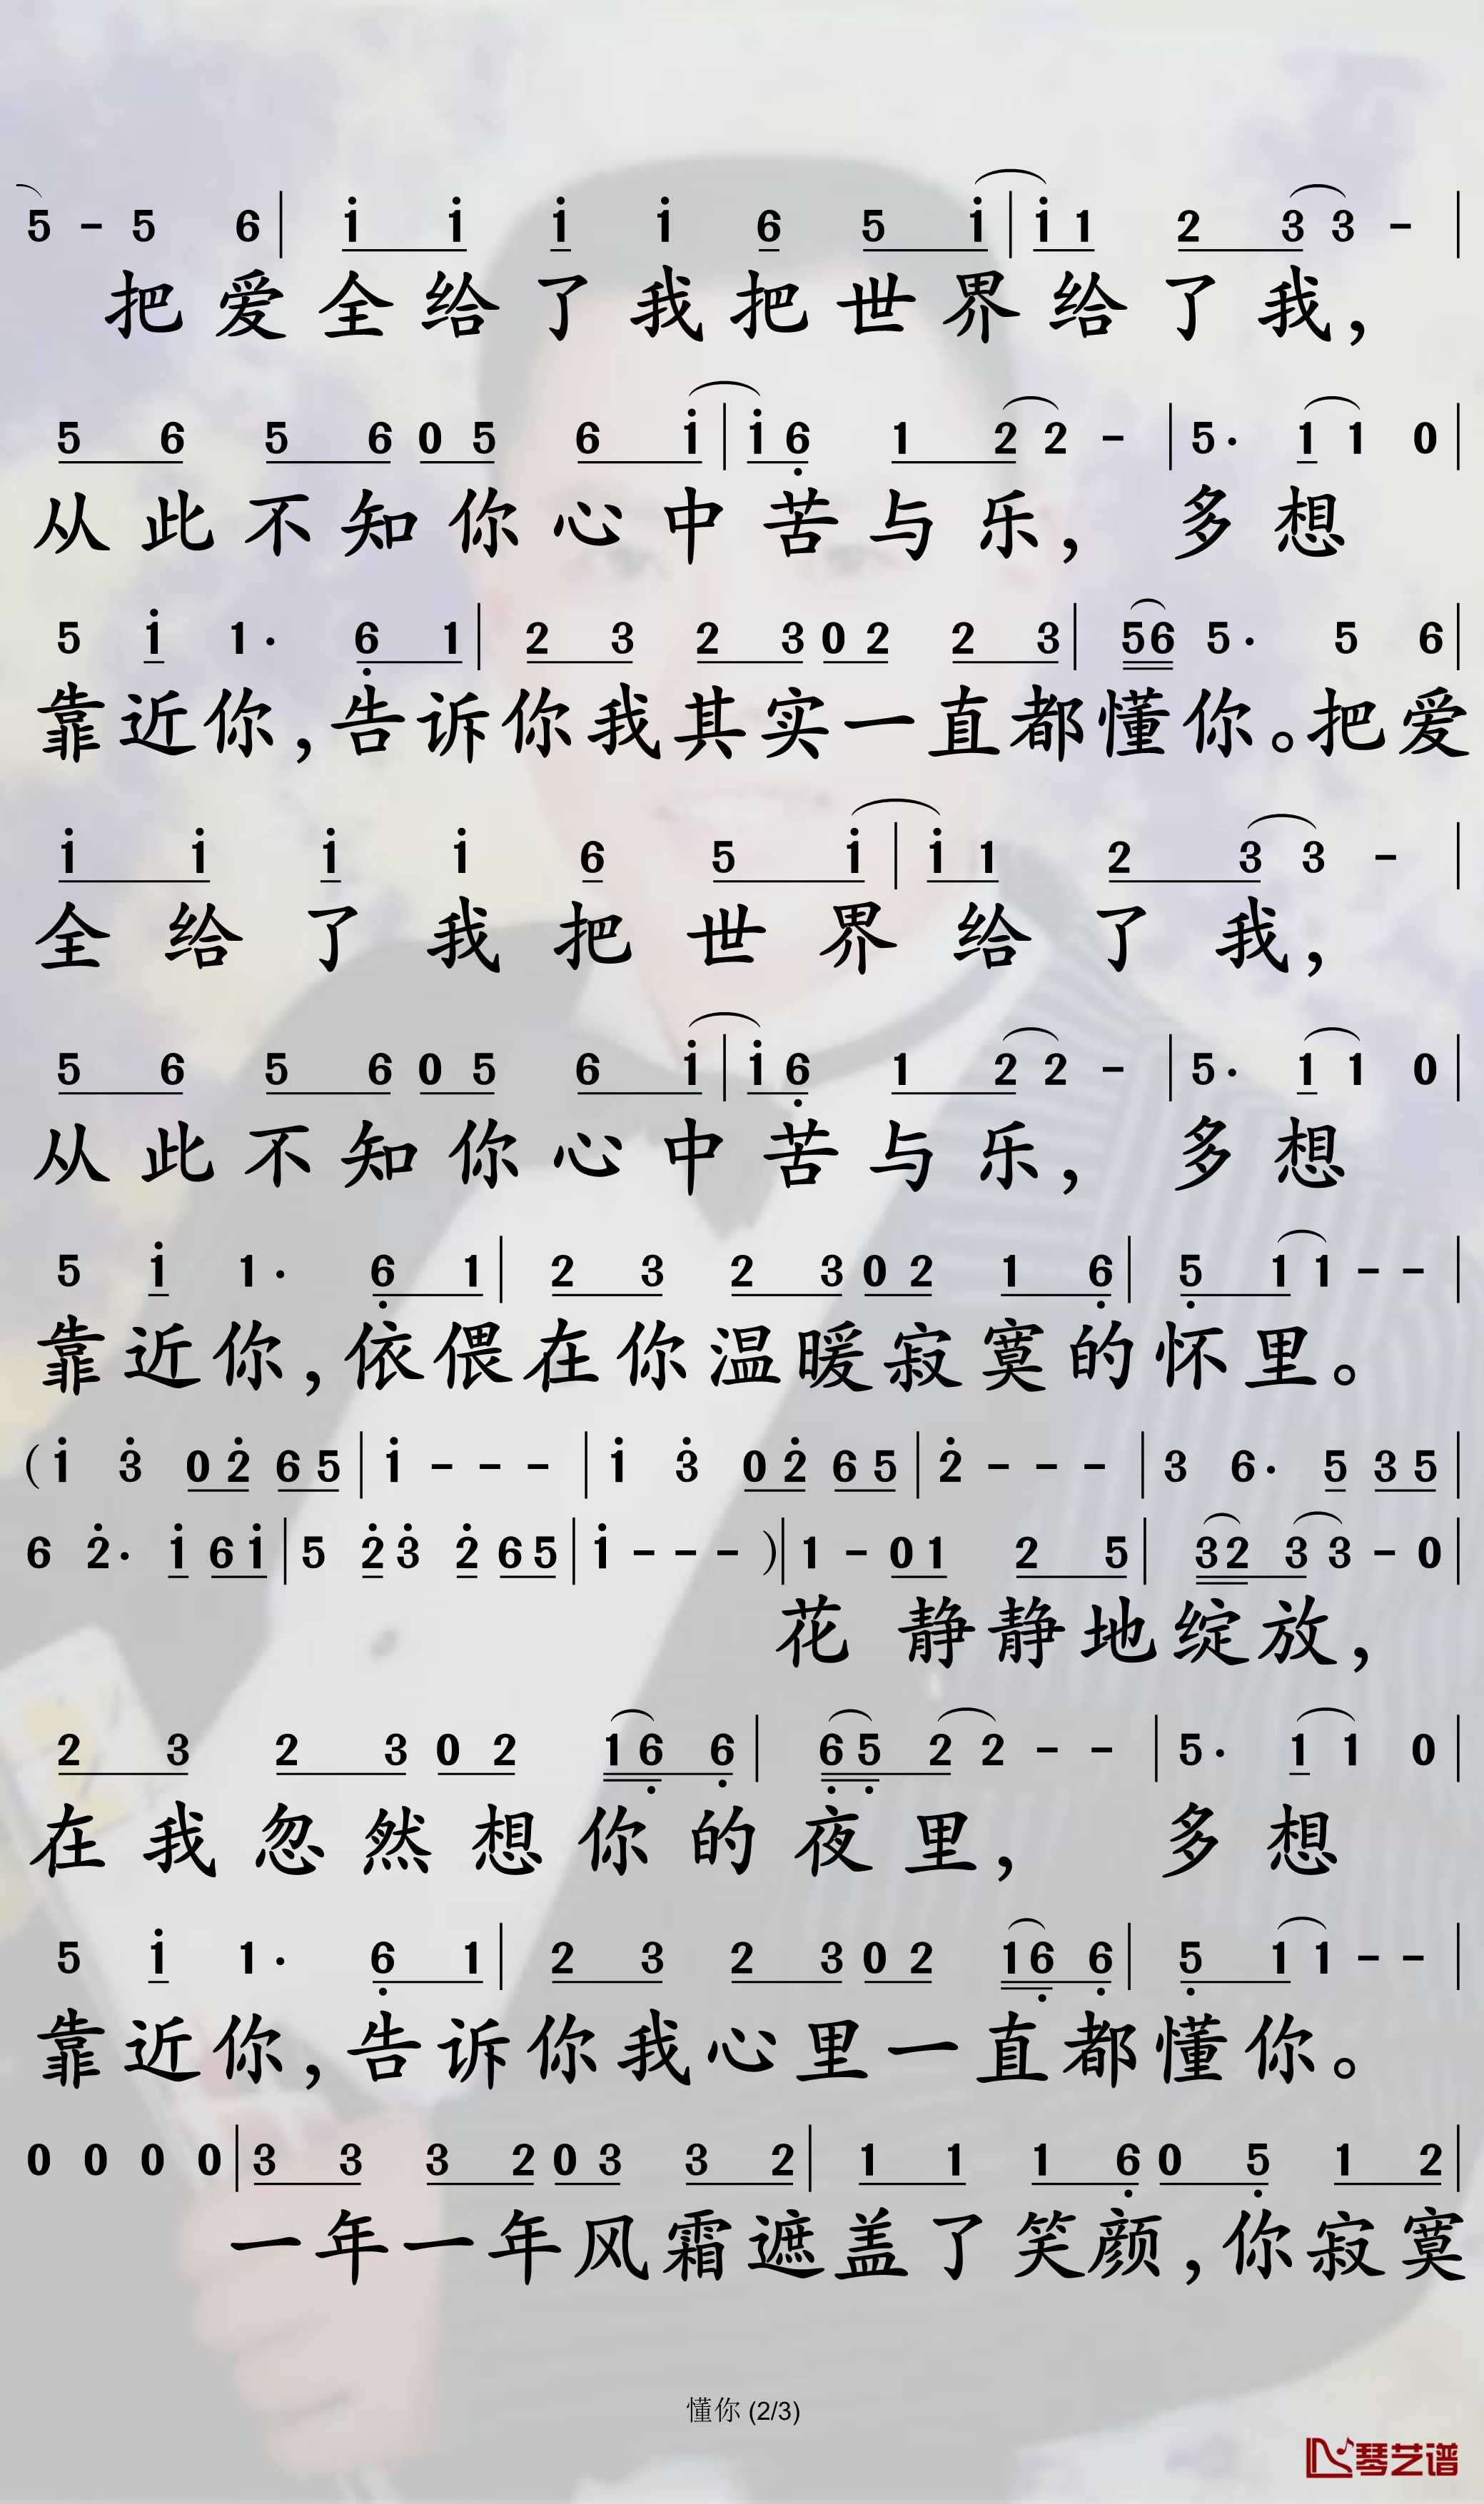 5 - 5 6 | i i i i 6 5 i | i 1 2 3 3 - |
把爱全给了我把世界给了我，
5 6 5 6 0 5 6 i | i 6 1 2 2 - | 5. 1 1 0 |
从此不知你心中苦与乐，多想
5 i 1. 6 1 | 2 3 2 3 0 2 2 3 | 5 6 5. 5 6 |
靠近你，告诉你我其实一直都懂你。把爱
i i i i 6 5 i | i 1 2 3 3 - |
全给了我把世界给了我，
5 6 5 6 0 5 6 i | i 6 1 2 2 - | 5. 1 1 0 |
从此不知你心中苦与乐，多想
5 i 1. 6 1 | 2 3 2 3 0 2 1 6 | 5 1 1 - - |
靠近你，依偎在你温暖寂寞的怀里。
( i 3 0 2 6 5 | i - - - | i 3 0 2 6 5 | 2 - - - | 3 6. 5 3 5 |
6 2. i 6 i | 5 2 3 2 6 5 | i - - - ) | 1 - 0 1 2 5 | 3 2 3 3 - 0 |
花静静地绽放，
2 3 2 3 0 2 1 6 6 | 6 5 2 2 - - | 5. 1 1 0 |
在我忽然想你的夜里，多想
5 i 1. 6 1 | 2 3 2 3 0 2 1 6 6 | 5 1 1 - - |
靠近你，告诉你我心里一直都懂你。
0 0 0 0 | 3 3 3 2 0 3 3 2 | 1 1 1 6 0 5 1 2 |
一年一年风霜遮盖了笑颜，你寂寞
懂你 (2/3)
琴艺谱